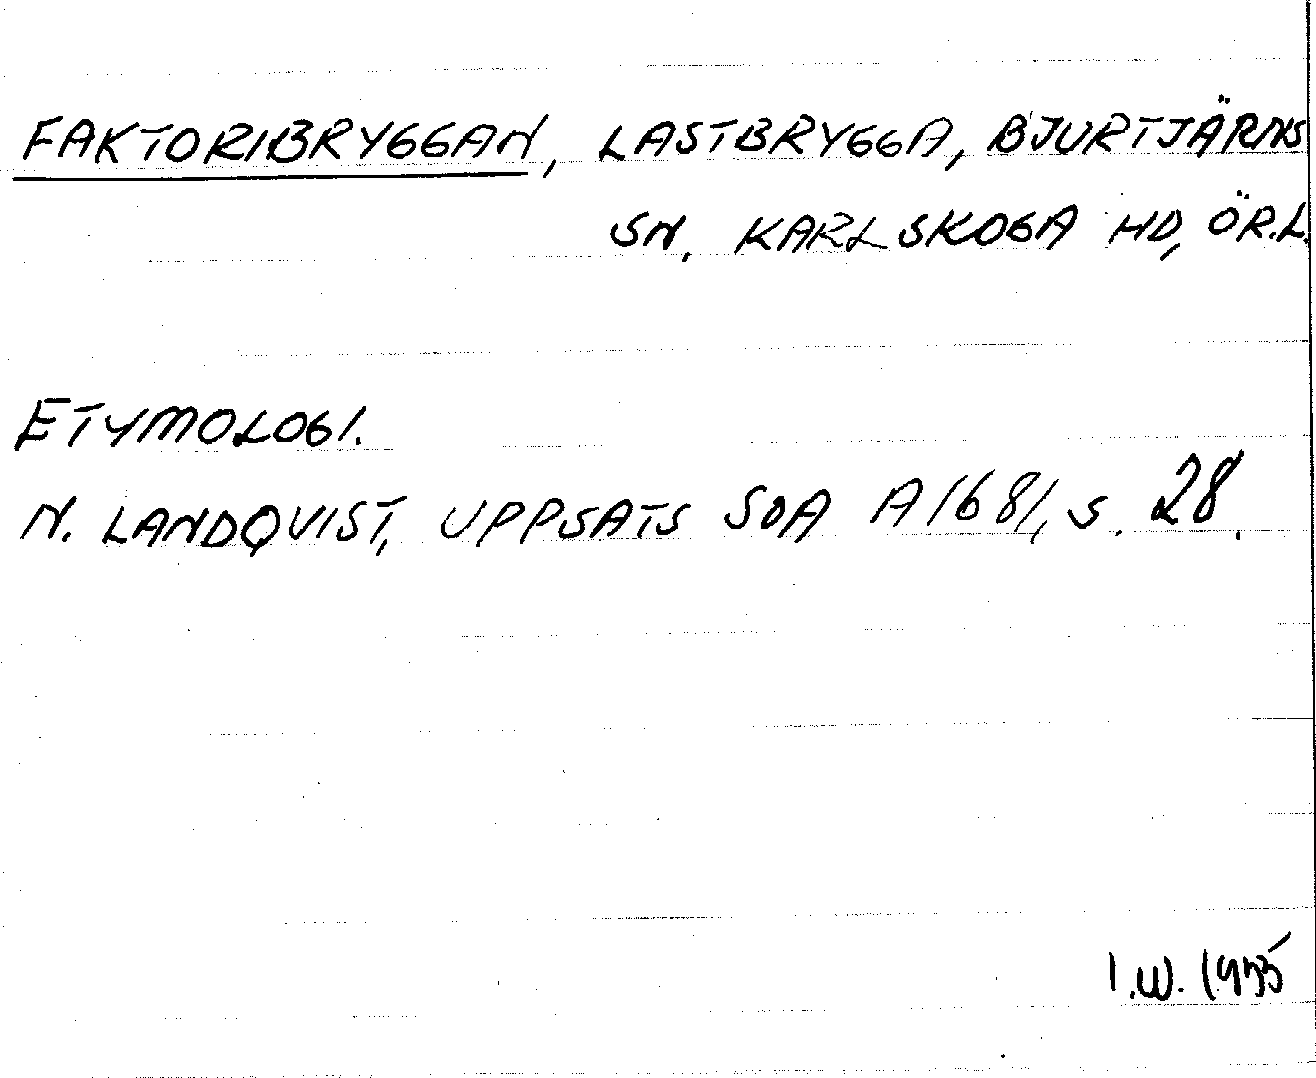 FAKTORIBRYGGAN, LASTBRYGGA, BJURTJÄRNS
SN, KARLSKOGA HD, ÖR.L.
ETYMOLOGI.
N. LANDQVIST, UPPSATS SOA A1681, S. 28.
I.W.